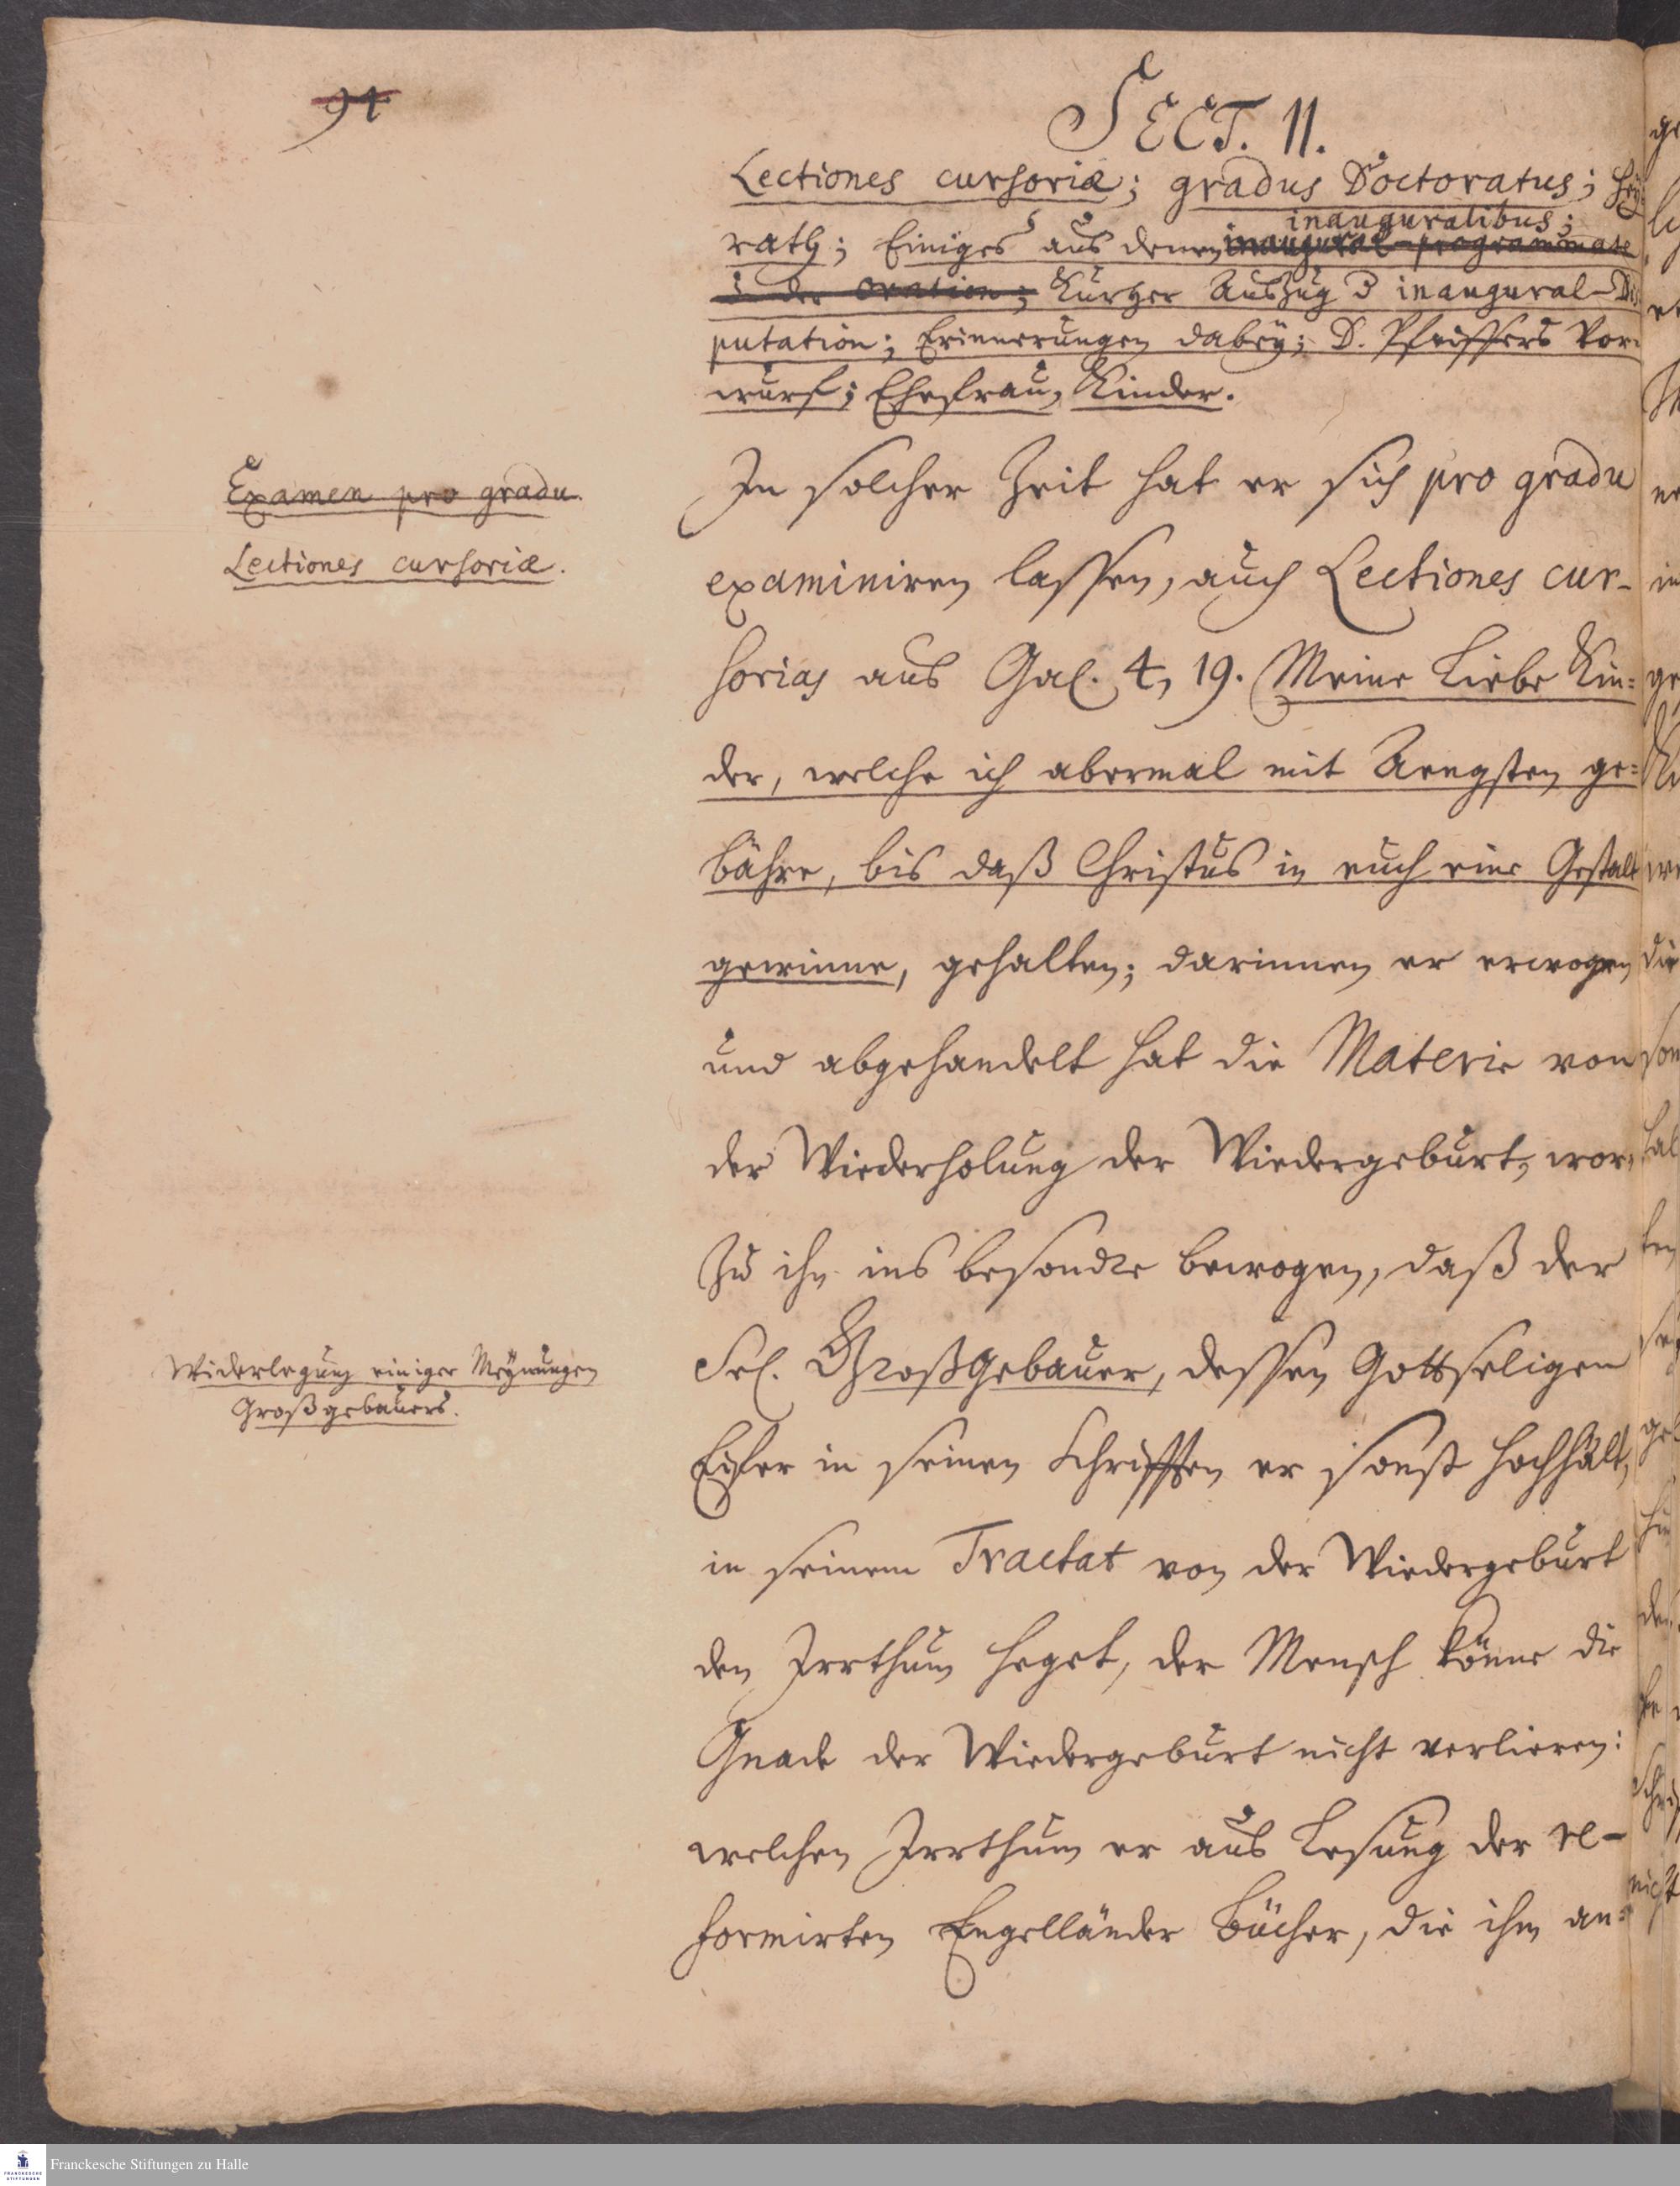 94
SECT. II.
Lectiones cursoriæ; gradus Doctoratus; Hey-
rath; Einiges aus denen inauguralibus;
inaugural-programmate
u. der oration; Kurtzer Auszug d inaugural-Dis
putation; Erinnerungen dabey; D. Pfeiffers Vor-
wurf; Ehefrau, Kinder.
Examen pro gradu.
Lectiones cursoriæ.
In solcher Zeit hat er sich pro gradu
examiniren lassen, auch Lectiones cur-
sorias aus Gal. 4, 19. Meine Liebe Kin=
der, welche ich abermal mit Aengsten ge=
bähre, bis daß Christus in euch eine Gestalt
gewinne, gehalten; darinnen er erwogen
und abgehandelt hat die Materie von
der Wiederholung der Wiedergeburt, wor-
zu ihn ins besondre bewogen, daß der
Widerlegung einiger Meynungen
Großgebauers.
Sel. Großgebauer, dessen Gottseligen
Eifer in seinen Schrifften er sonst hochhält,
in seinem Tractat von der Wiedergeburt
den Irrthum heget, der Mensch könne die
Gnade der Wiedergeburt nicht verlieren:
welchen Irrthum er aus Lesung der re-
formirten Engelländer Bücher, die ihm an=
Franckesche Stiftungen zu Halle